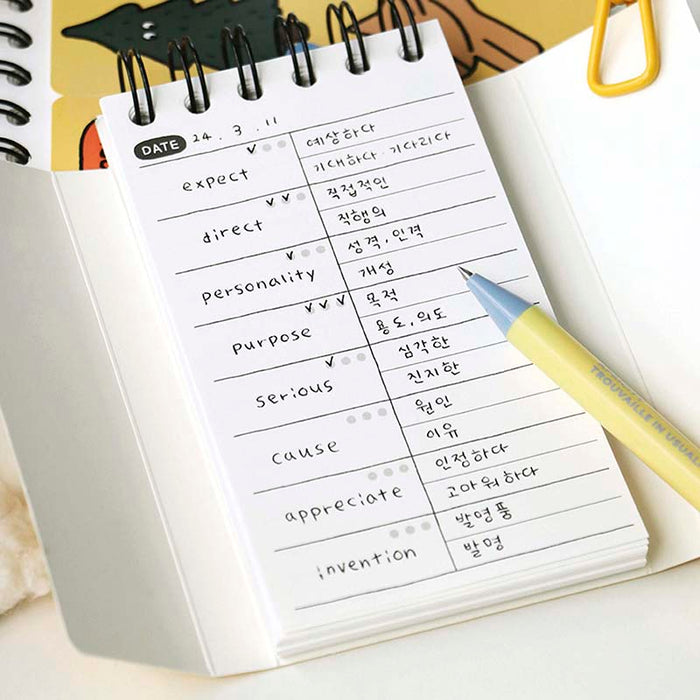 DATE 24. 3. 11
expect
예상하다
기대하다 · 기다리다
direct
직접적인
직행의
personality
성격, 인격
개성
purpose
목적
용도, 의도
serious
심각한
진지한
cause
원인
이유
appreciate
인정하다
고마워하다
invention
발명품
발명
TROUVAILLE IN USUAL